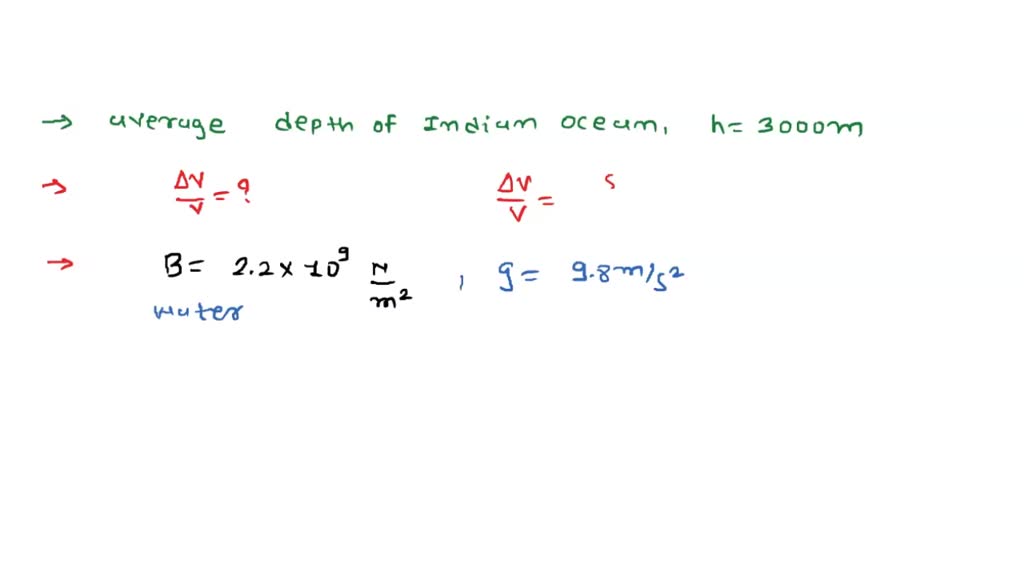 → average depth of Indian ocean, h= 3000m
→ ΔV/V = ? ΔV/V = s
→ B= 2.2 × 10⁹ N/m² , g= 9.8m/s²
water